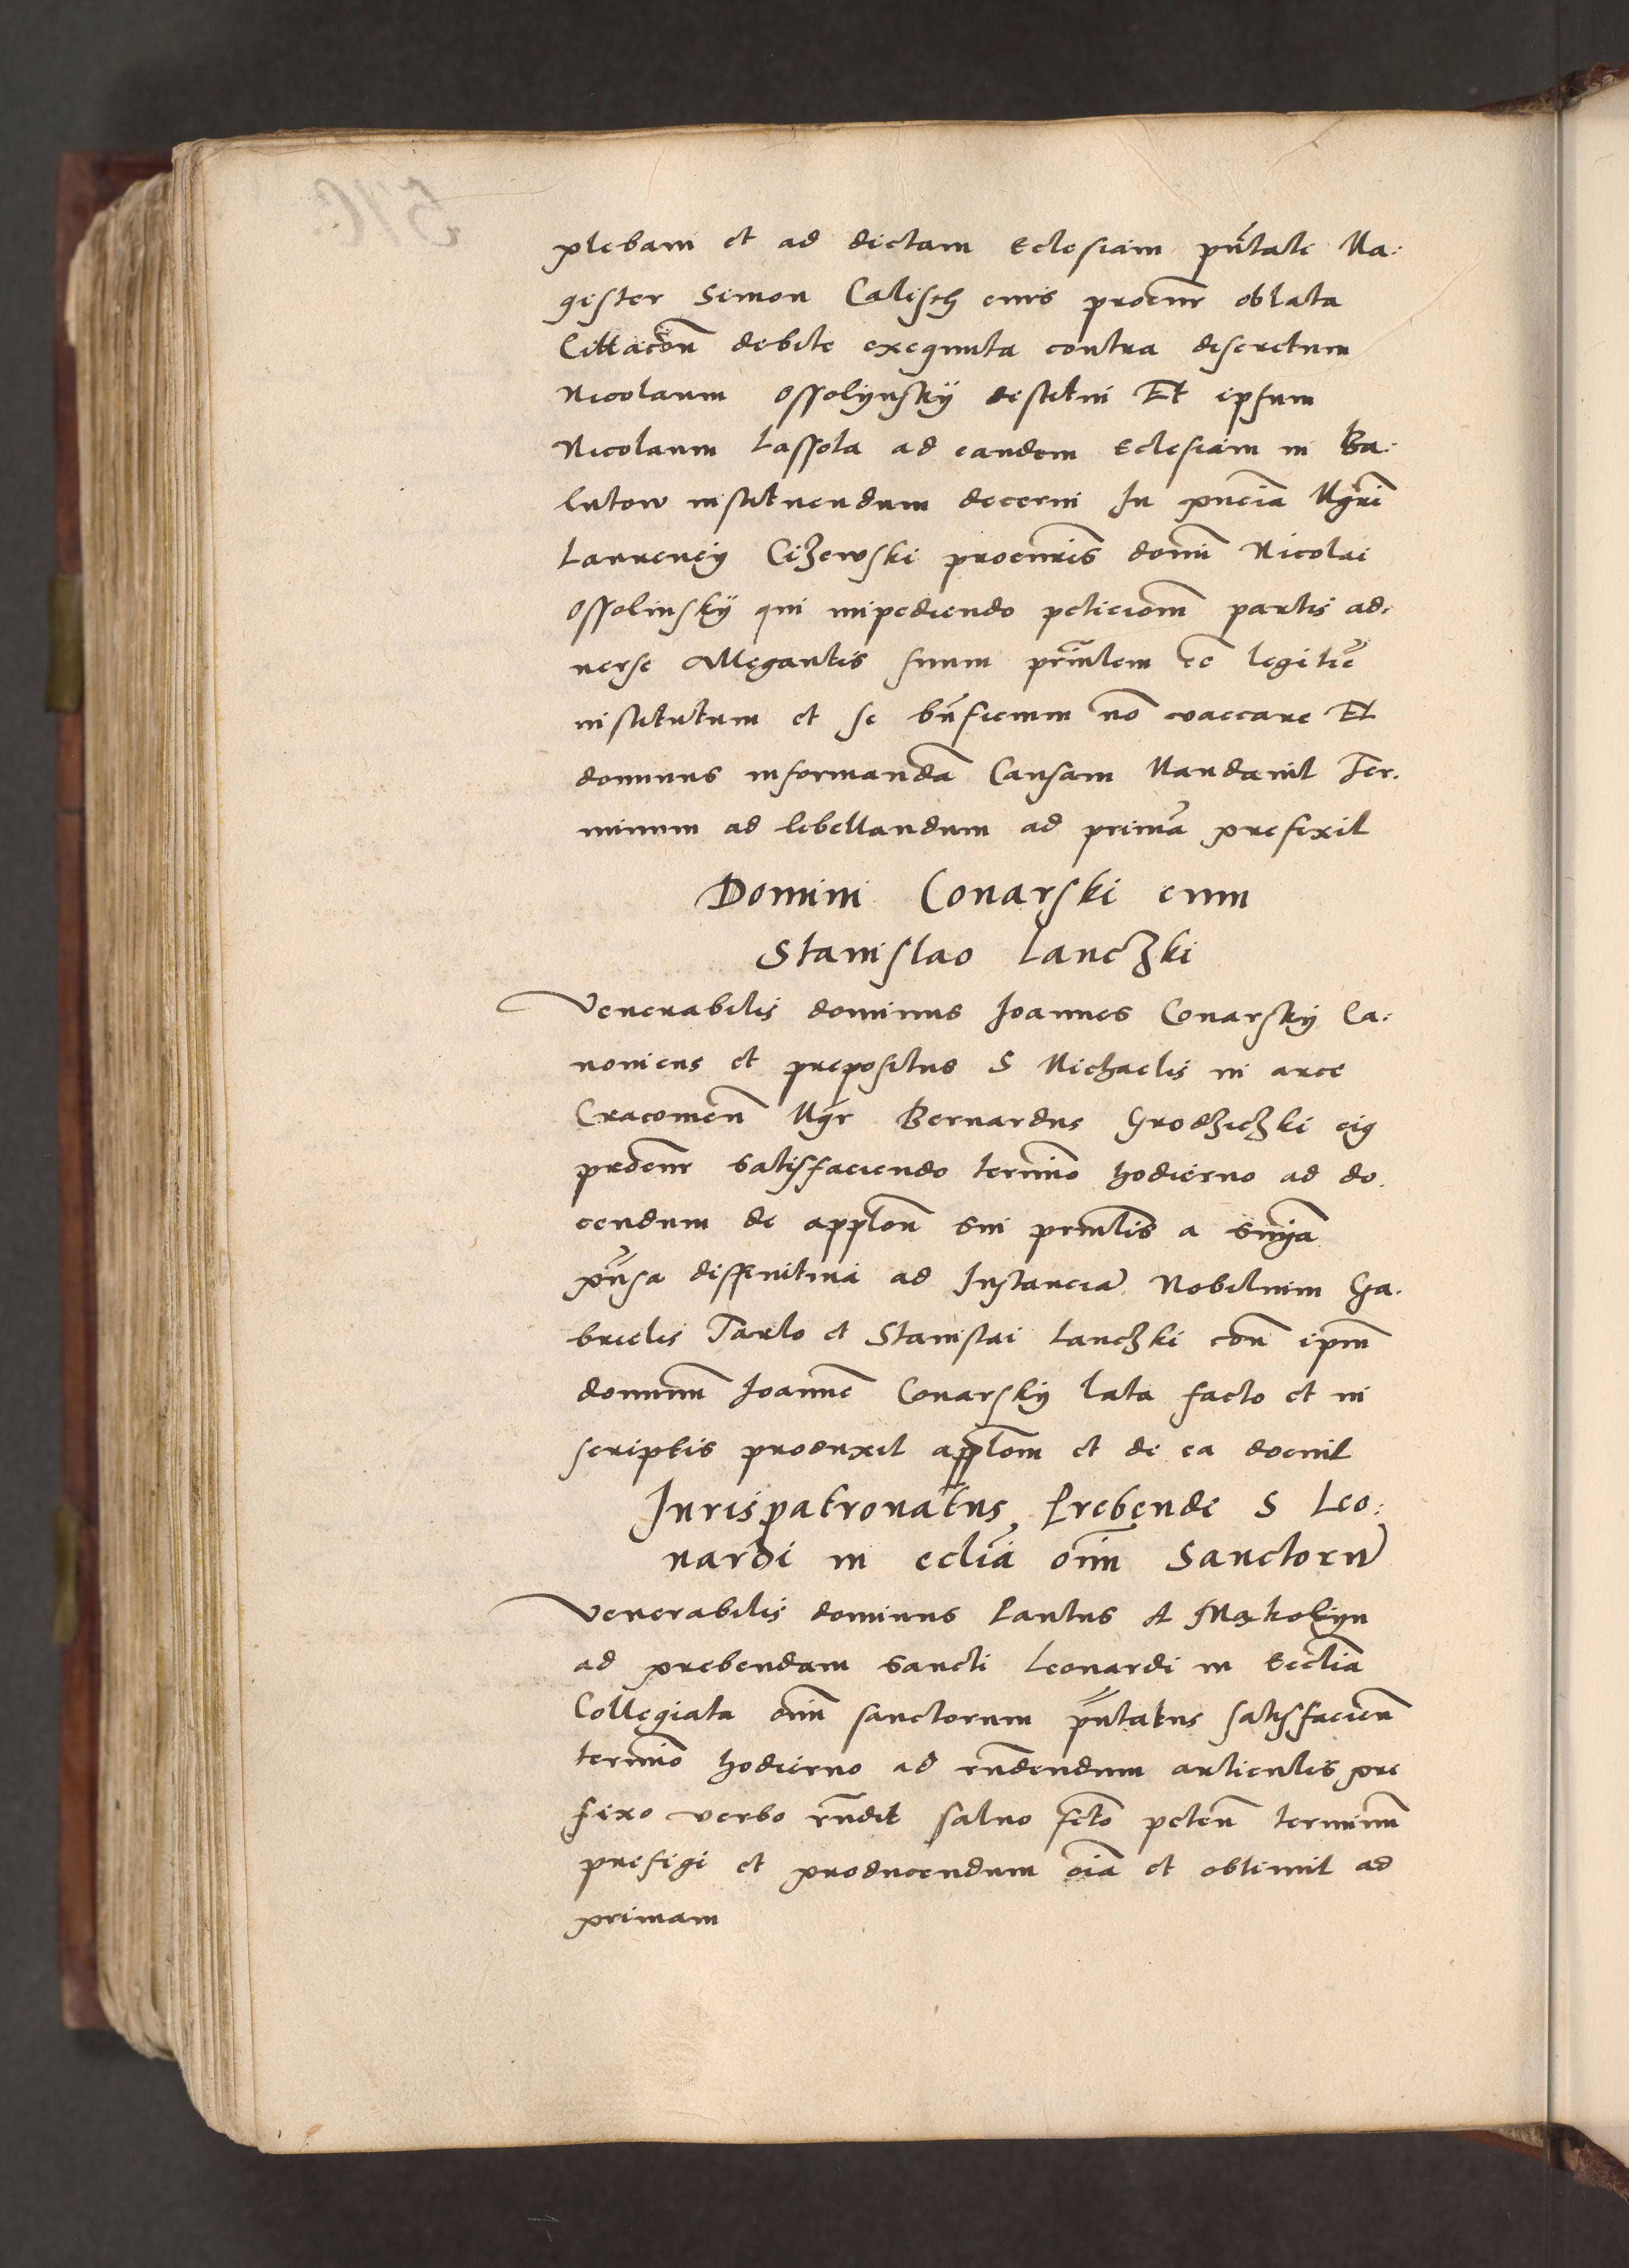 plebam et ad dictam Eclesiam pñtati Ma:
gister Simon Calisch eius procur̃ oblata
Cittacoñ debite exequuta contra discretum
Nicolaum Ossolynskÿ destitui Et ipsum
Nicolaum Lassota ad eandem Eclesiam in Ba:
lutow instituendum decerni In pñcia Mgr̃i
Laurencÿ Ciʒewski procuris domi Nicolai
Ossolinskÿ qui impediendo peticiom̃ partis ad:
uerse Allegantis suum prin̄lem eē legitie
institutum et sic bñficium nō vaccare Et
dominus informandā Causam Mandauit Ter:
minum ad libellandum ad primā prefixit
Domini Conarski cum
Stanislao Lancʒki
Venerabilis dominus Joannes Conarskÿ Ca:
nonicus et prepositus S Michaelis in arce
Cracouieñ Mgr̃ Bernardus Grodʒicʒki eiꝰ
procur̃ Satisfaciendo termio hodierno ad do:
cendum de applōn sui prin̄lis a Snÿa
pñsa diffinitiua ad Instanciā Nobilium Ga:
brielis Tarlo et Stanislai Lancʒki con̄ ipm̄
dominū Joannē Conarskÿ lata facto et in
scriptis produxit applōm et de ea docuit
Jurispatronatus Prebende S Leo:
nardi in ecliā oīm Sanctorū
Venerabilis dominus Paulus A Mąkolÿn
ad prebendam Sancti Leonardi in Eecliā
Collegiata oīm sanctorum pñtatus satisfacieñ
termio hodierno ad rñdendum articulis pre
fixo verbo rñdit saluo scto peteñ terminū
prefigi et producendum oīa et obtinuit ad
primam